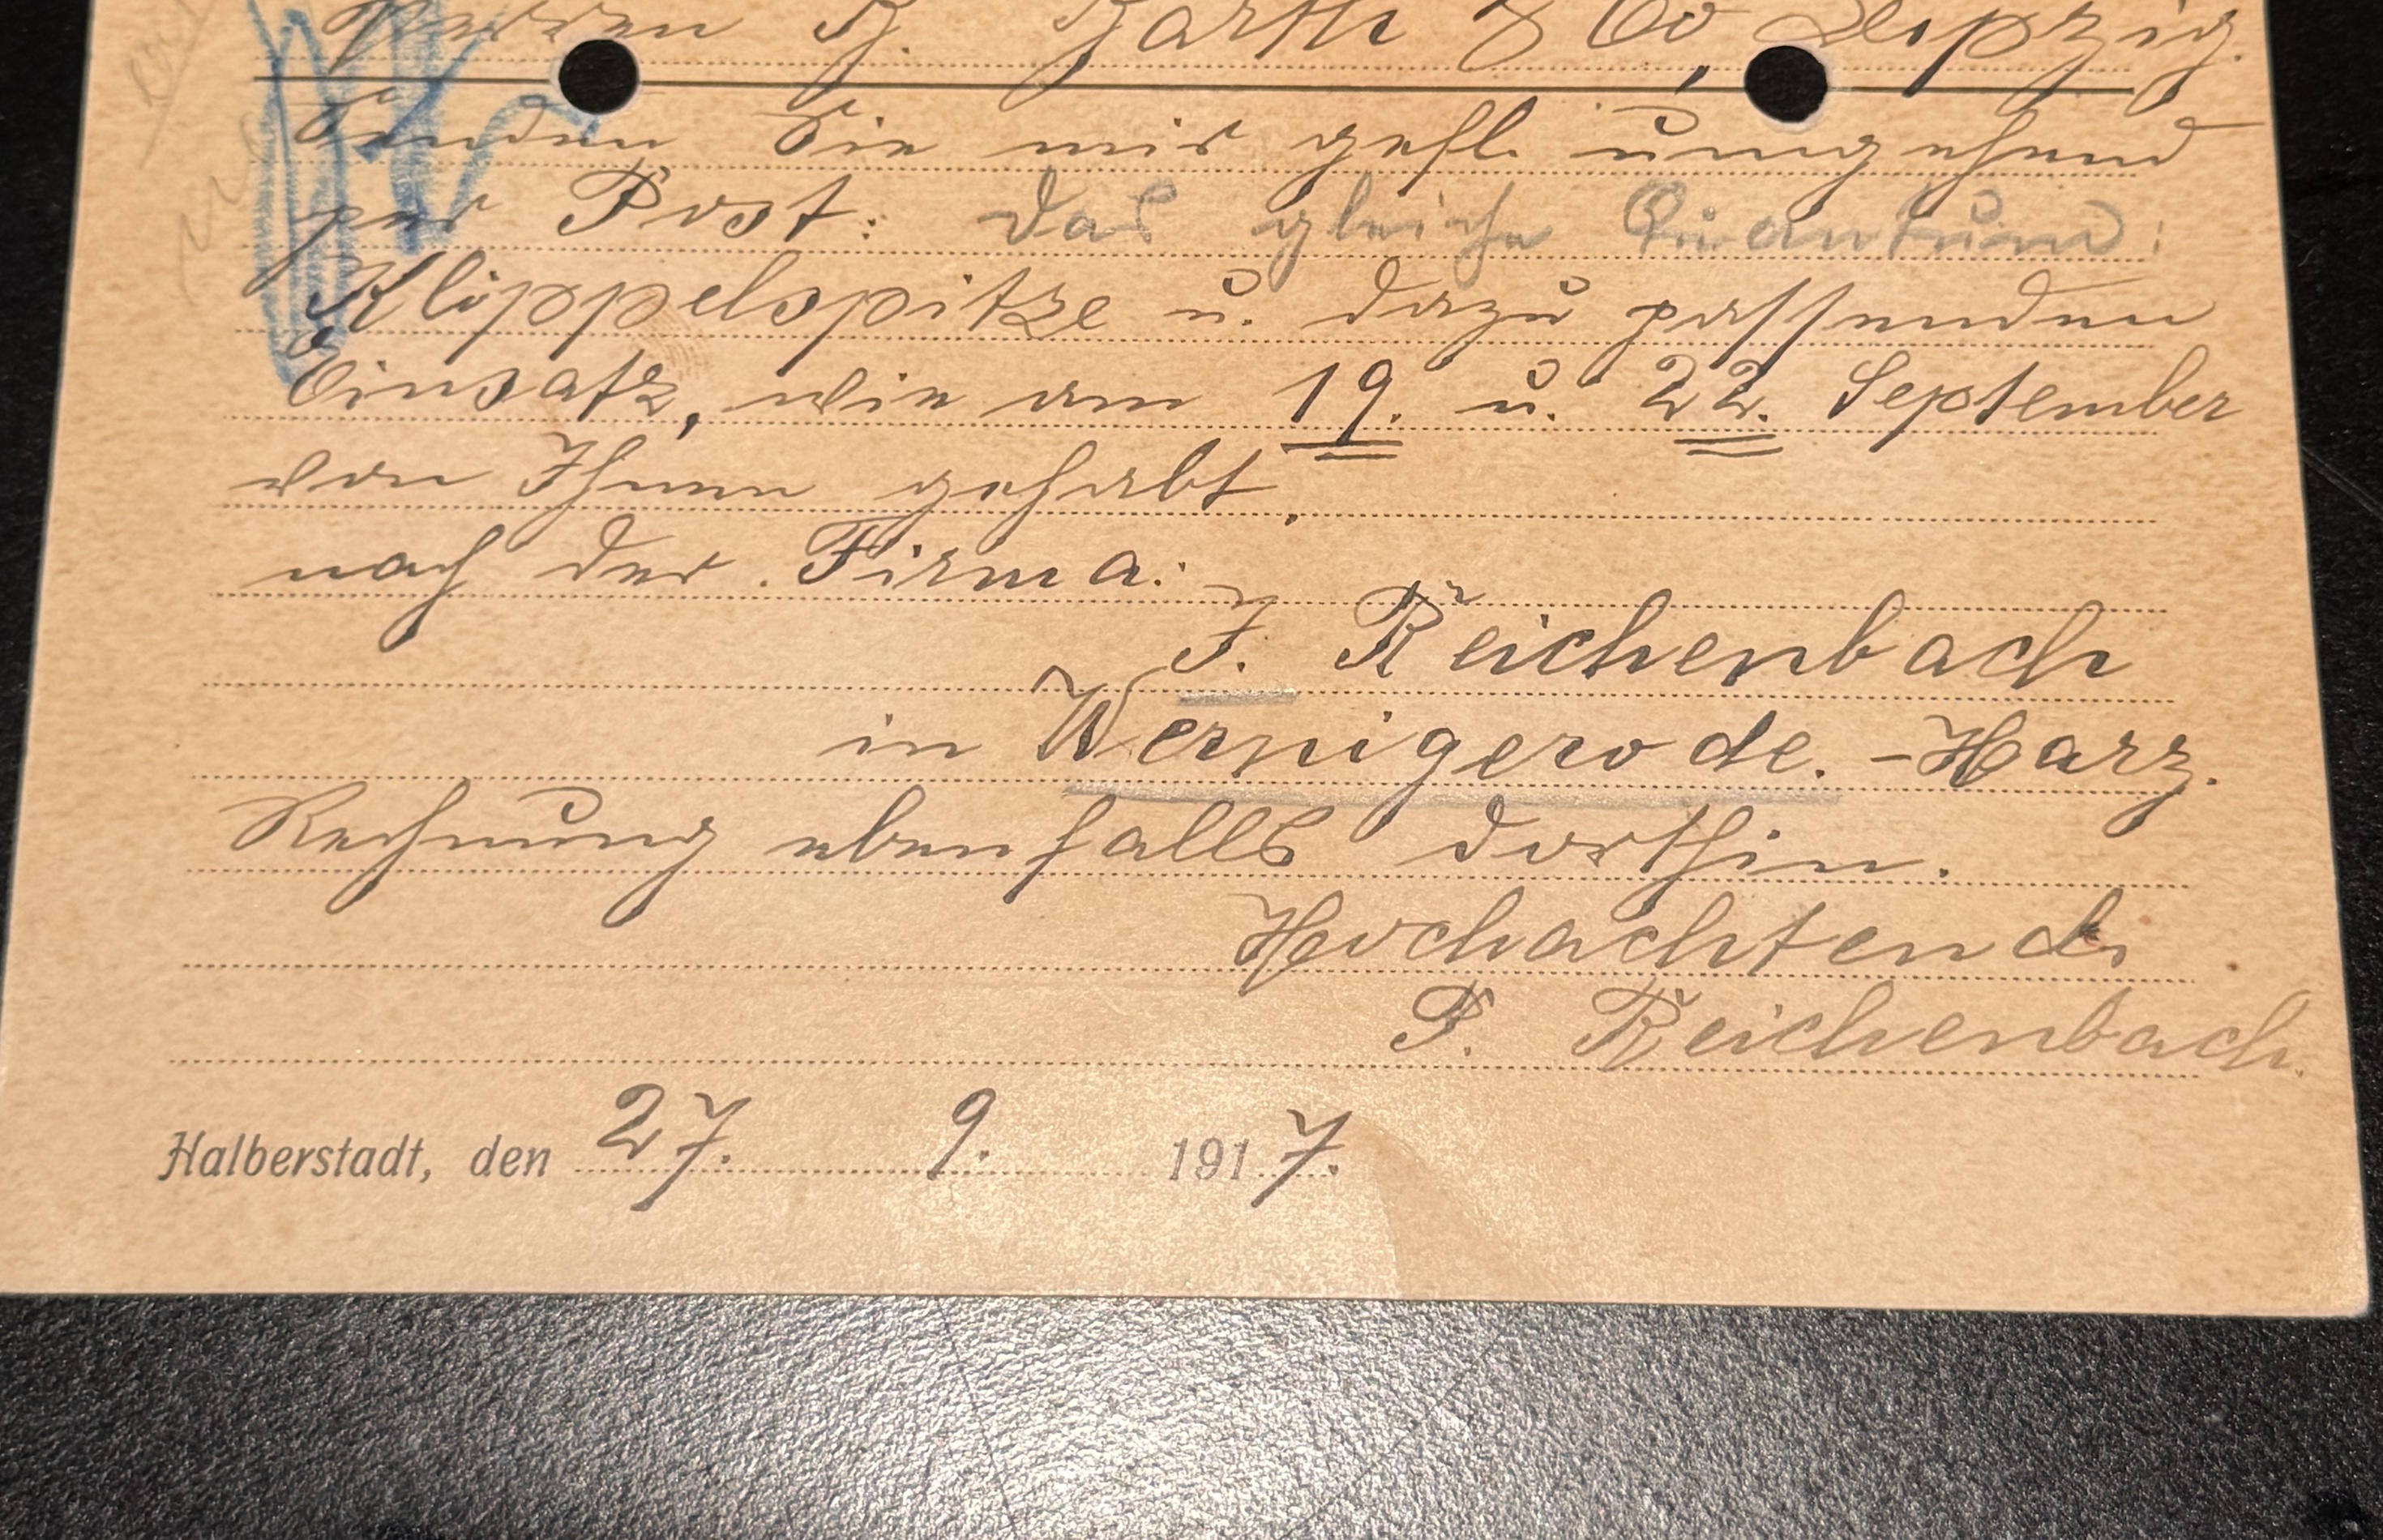 Herren H. Barth & Co, Leipzig.
Senden Sie mir gefl. umgehend
per Post: das gleiche Quantum:
Klöppelspitze u. dazu passenden
Einsatz, wie am 19. u. 22. September
von Ihnen gehabt.
nach der Firma:
J. Reichenbach
in Wernigerode. - Harz.
Rechnung ebenfalls dorthin.
Hochachtend.
P. Reichenbach.
Halberstadt, den 27. 9. 1917.